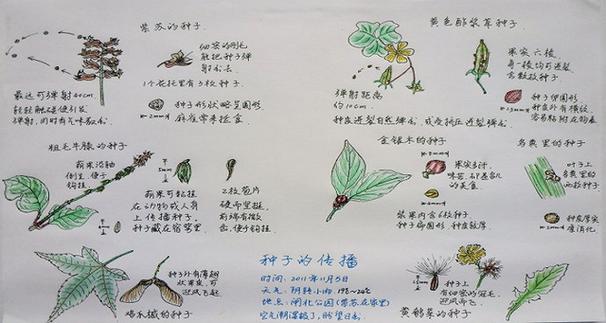 紫苏的种子
细密的刚毛
能把种子弹
射出去
1个花托里有3枚种子
最远可弹射40cm
轻轻触碰便引发
弹射,同时有气味散出
种子形状略呈圆形
麻雀常来捡食
2mm
黄色酢浆草种子
果实六棱
每一棱均可迸裂
含数粒种子
弹射距离
约10cm
种皮迸裂自然弹出 或受挤压迸裂弹出
种子卵圆形
种皮外有横纹
容易粘附在物表
2mm
粗毛牛膝的种子
萌果沿轴
倒生,便于
钩挂
5mm
萌果可粘挂
在动物或人身
上传播种子,
种子藏在宿萼里
2枚苞片
硬而呈挺,
前端有微齿
齿,便于钩挂
金银木的种子
果实多汁,
味苦,却是鸟们
的美食
浆果内含6枚种子
种子卵圆形 种皮较厚
鸟粪里的种子
叶子上
鸟粪里的
两枚种子
2mm
种皮厚实
难消化
鸡爪槭的种子
种子外有薄翅
状果皮,可
迎风飞起
种子的传播
时间:2011年11月5日
天气:阴转小雨 14℃~20℃
地点:闸北公园(带苏在家里)
空气潮湿极了,盼望日出
黄鹌菜的种子
种子上
有细密的冠毛
迎风而飞